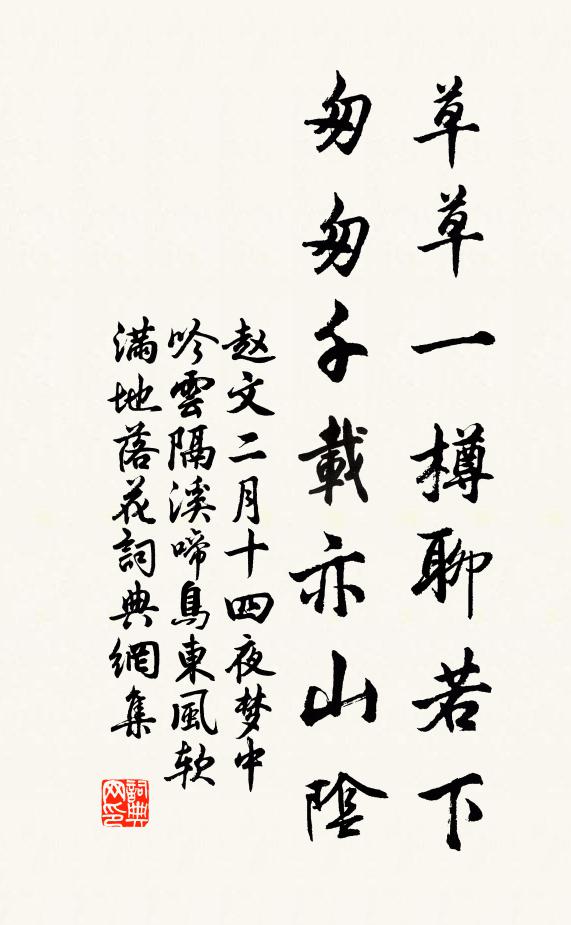 草草一樽聊若下
匆匆千載亦山陰
赵文二月十四夜梦中
吟雲隔溪啼鳥東風软
满地落花詞典網集
詞典网印